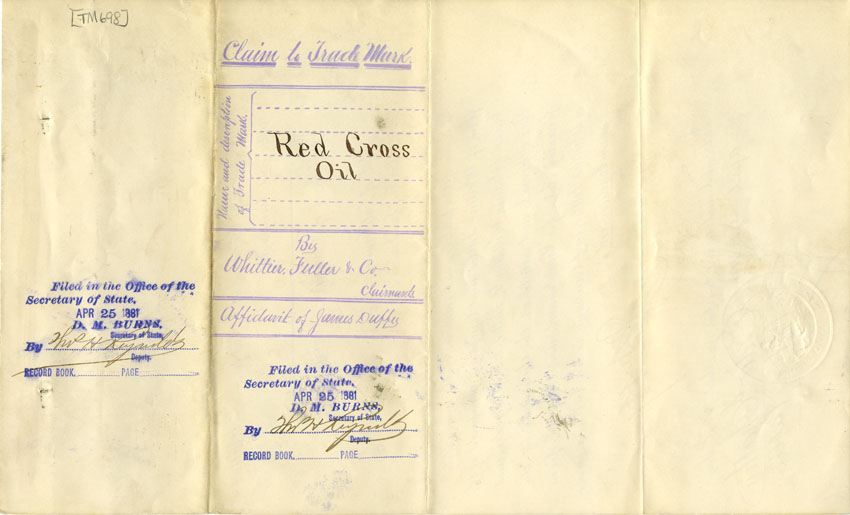 [TM698]
Claim to Trade Mark.
Name and description
of Trade Mark.
Red Cross
Oil
By
Whittier, Fuller & Co.
Claimants
Affidavit of James Duffy
Filed in the Office of the
Secretary of State,
APR 25 1881
D. M. BURNS,
Secretary of State,
By Thos H Reynolds
Deputy.
RECORD BOOK, PAGE
Filed in the Office of the
Secretary of State,
APR 25 1881
D. M. BURNS,
Secretary of State,
By Thos H Reynolds
Deputy.
RECORD BOOK, PAGE